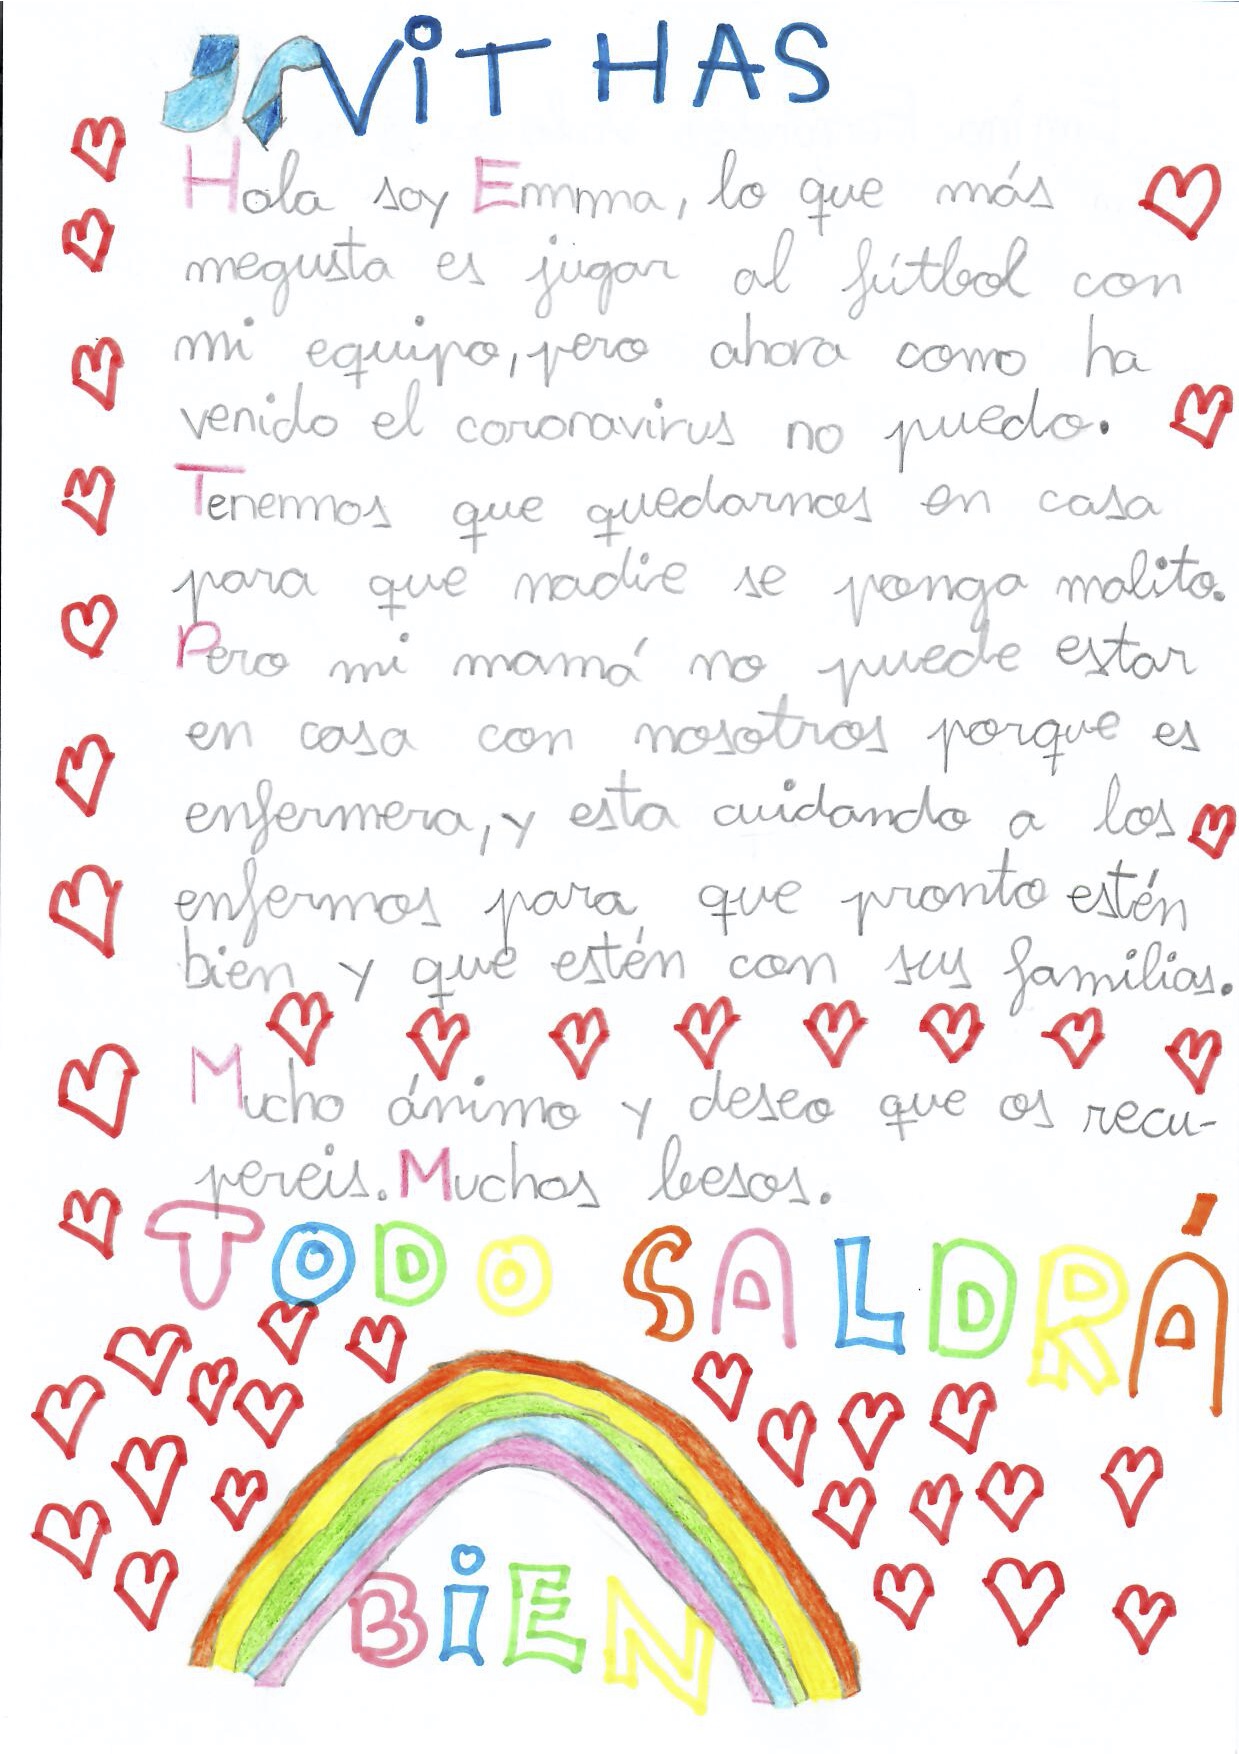 VITHAS
Hola soy Emma, lo que más
megusta es jugar al fútbol con
mi equipo, pero ahora como ha
venido el coronavirus no puedo.
Tenemos que quedarnos en casa
para que nadie se ponga malito.
Pero mi mamá no puede estar
en casa con nosotros porque es
enfermera, y esta cuidando a los
enfermos para que pronto estén
bien y que estén con sus familias.
Mucho ánimo y deseo que os recu-
pereis. Muchos besos.
TODO SALDRÁ
BiEN